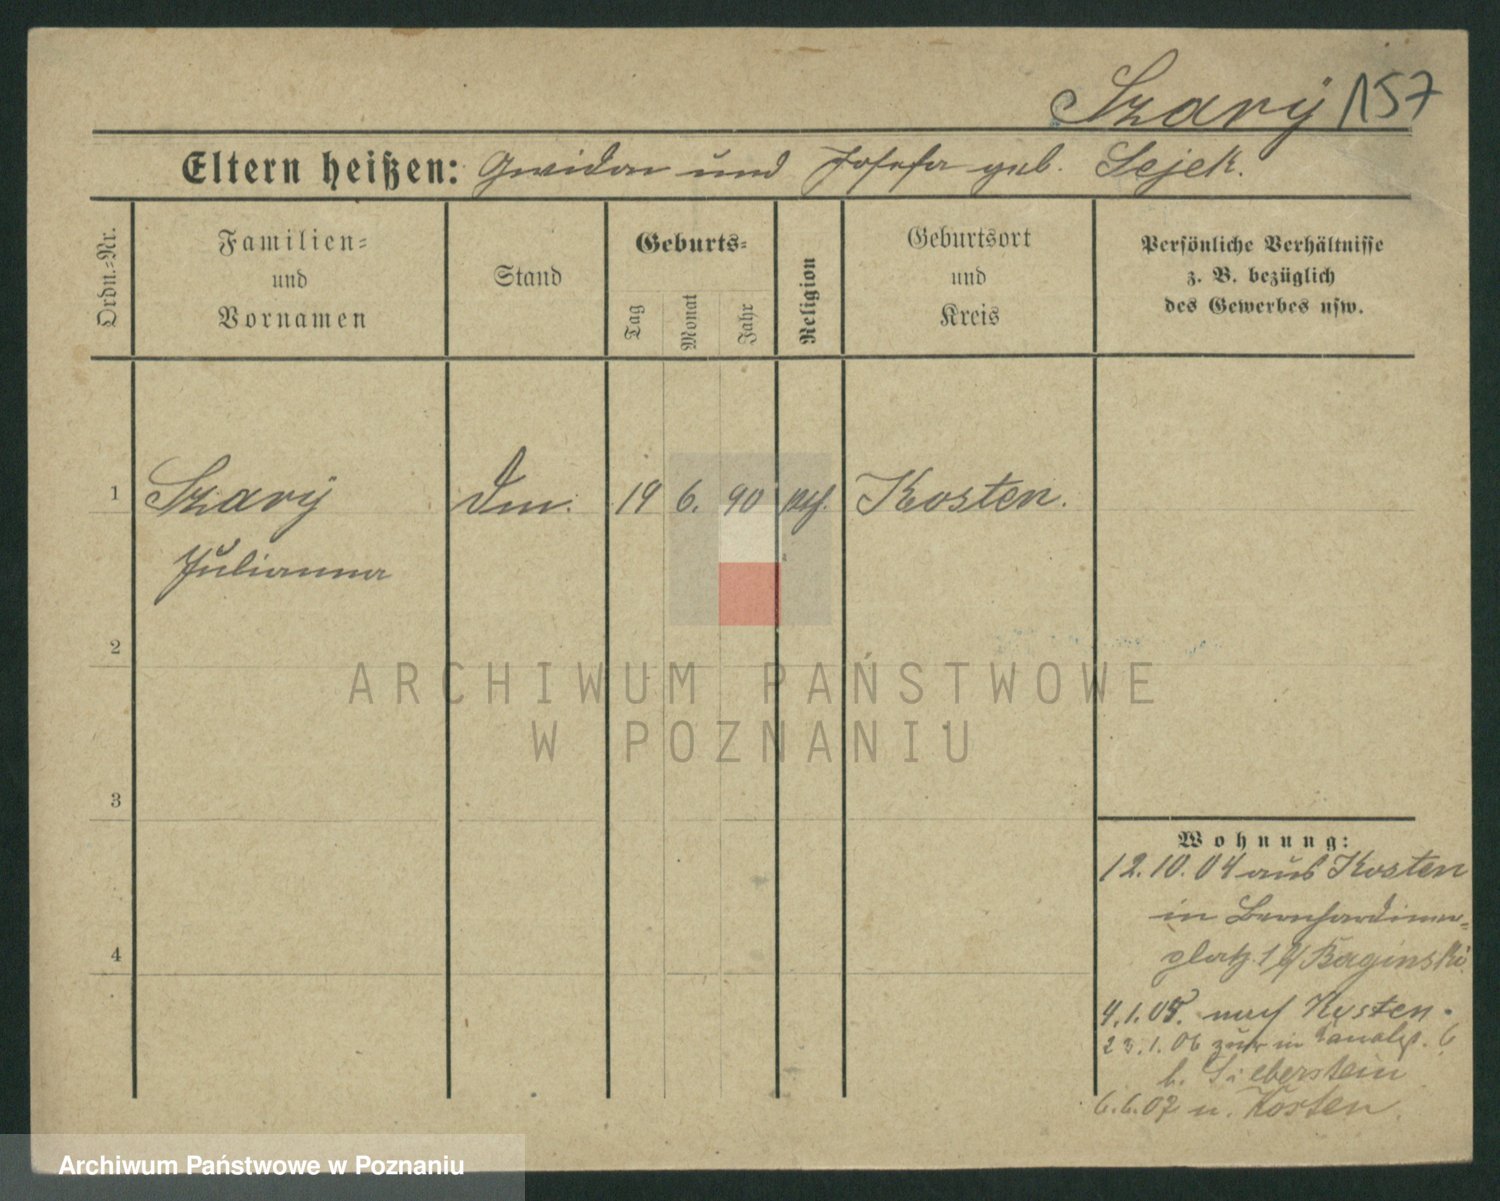 Szary 157
Eltern heißen: Gwidon und Josefa geb. Sejek.
Ordn.=Nr.
Familien=
und
Vornamen
Stand
Geburts=
Tag
Monat
Jahr
Religion
Geburtsort
und
Kreis
Persönliche Verhältnisse
z. B. bezüglich
des Gewerbes usw.
1 Szary 19 6. 90 Kosten.
Julianna
2
3
4
Wohnung:
12.10.04 aus Kosten
in Bernhardiner=
platz 1 b/ Baginski
4.1.05. nach Kosten.
23.1.06 zur in Kanalst. 6
b. Lieberstein
6.6.07 n. Kosten.
ARCHIWUM PAŃSTWOWE
W POZNANIU
Archiwum Państwowe w Poznaniu